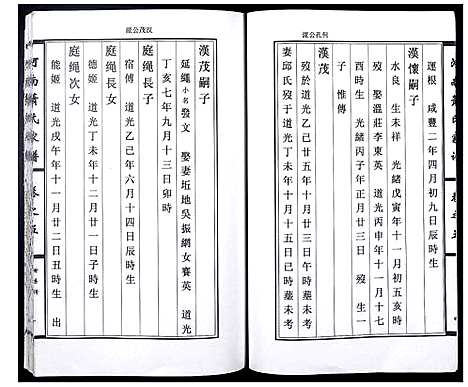 何孔公派
運根 咸豐二年四月初九日辰時生
漢懷嗣子
水良 生未祥 光緒戊寅年十一月初五亥時
歿 娶溫莊李東英 道光丙申年十一月十七
酉時生 光緒丙子年正月三日 歿 生一
子 惟傳
漢茂
歿於道光廿五年十月廿三日巳時墓未考
妻邱氏歿于道光丁未年十月十五日巳時墓未考
汉茂公派
漢茂嗣子
延繩 小名 發文 娶妻坵地吳振網女賽英 道光
丁亥七年九月十三日卯時
庭绳長子
宿傳 道光乙己年六月十四日辰時生
庭绳長女
德姬 道光丁未年十一月廿二日子時生
庭绳次女
能姬 道光戊午年十一月廿二日丑時生 出
河南蕭氏家譜 卷之五